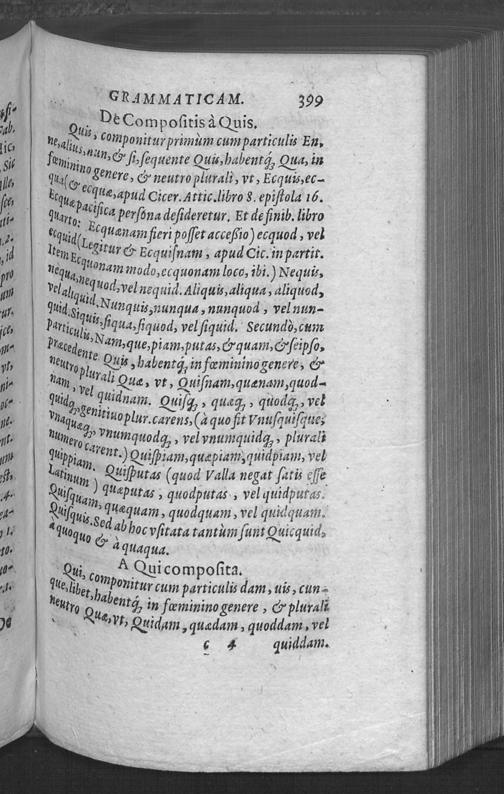 GRAMMATICAM. 399
De Compositis à Quis.
Quis, componitur primùm cum particulis En,
ne, alius, nun, & si, sequente Quis, habentq́; Qua, in
fœminino genere, & neutro plurali, vt, Ecquis, ec-
qua (& ecquæ, apud Cicer. Attic. libro 8. epistola 16.
Ecquæ pacifica persona desideretur. Et de finib. libro
quarto: Ecquænam fieri posset accessio) ecquod, vel
ecquid (Legitur & Ecquisnam, apud Cic. in partit.
Item Ecquonam modo, ecquonam loco, ibi.) Nequis,
nequa, nequod, vel nequid. Aliquis, aliqua, aliquod,
vel aliquid. Nunquis, nunqua, nunquod, vel nun-
quid. Siquis, siqua, siquod, vel siquid. Secundò, cum
particulis, Nam, que, piam, putas, & quam, & seipso,
præcedente Quis, habentq́; in fœminino genere, &
neutro plurali Quæ, vt, Quisnam, quænam, quod-
nam, vel quidnam. Quisq́;, quæq́;, quodq́;, vel
quidq́; genitiuo plur. carens, (à quo fit Vnusquisque;
vnaquæq́; vnumquodq́;, vel vnumquidq́;, plurali
numero carent.) Quispiam, quæpiam, quidpiam, vel
quippiam. Quisputas (quod Valla negat satis esse
Latinum) quæputas, quodputas, vel quidputas.
Quisquam, quæquam, quodquam, vel quidquam.
Quisquis. Sed ab hoc vsitata tantùm sunt Quicquid,
à quoquo & à quaqua.
A Qui composita.
Qui, componitur cum particulis dam, uis, cun-
que, libet, habentq́; in fœminino genere, & plurali
neutro Quæ, vt, Quidam, quædam, quoddam, vel
c 4 quiddam.